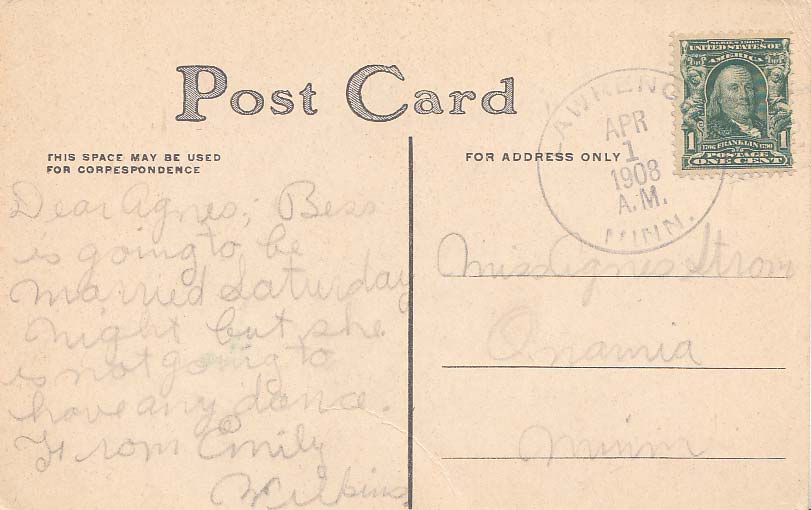 Post Card
THIS SPACE MAY BE USED
FOR CORPESPONDENCE
Dear Agnes; Bess
is going to be
married Saturday
night but she
is not going to
have any dance.
From Emily
Wilkins
FOR ADDRESS ONLY
Miss Agnes Strom
Onamia
Minn
LAWRENC
APR
1
1908
A.M.
MINN.
SERIES 1902
UNITED STATES OF
AMERICA
1 1
1706 FRANKLIN 1790
POSTAGE
ONE CENT